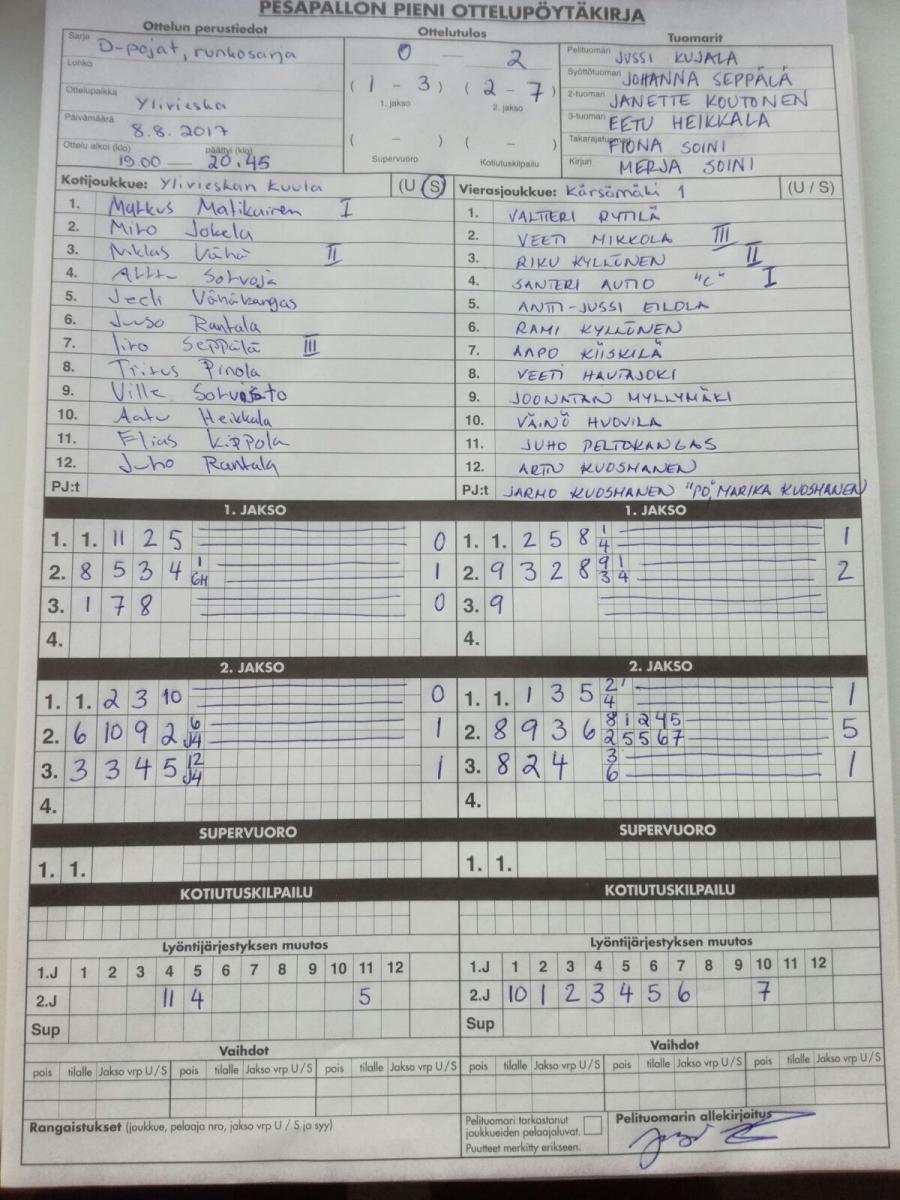 PESÄPALLON PIENI OTTELUPÖYTÄKIRJA
Ottelun perustiedot
Sarja D-pojat, runkosarja
Lohko
Ottelupaikka Ylivieska
Päivämäärä 8.8.2017
Ottelu alkoi (klo) päättyi (klo)
19.00 — 20.45
Ottelutulos
0 — 2
( 1 - 3 ) ( 2 - 7 )
1. jakso 2. jakso
( - ) ( - )
Supervuoro Kotiutuskilpailu
Tuomarit
Pelituomari JUSSI KUJALA
Syöttötuomari JOHANNA SEPPÄLÄ
2-tuomari JANETTE KOUTONEN
3-tuomari EETU HEIKKALA
Takarajatuomari FIONA SOINI
Kirjuri MERJA SOINI
Kotijoukkue: Ylivieskan Kuula (U / S)
1. Markus Matikainen I
2. Miro Jokela
3. Niklas Vähä II
4. Sorvoja
5. Vähäkangas
6. Juuso Rantala
7. Iiro Seppälä III
8. Tiitus Pinola
9. Ville
10. Aatu Heikkala
11. Elias Kippola
12. Juho Rantala
PJ:t
Vierasjoukkue: Kärsämäki 1 (U / S)
1. VALTTERI RYTILÄ
2. VEETI MIKKOLA III
3. RIKU KYLLÖNEN II
4. SANTERI AUTIO "C" I
5. ANTTI-JUSSI EILOLA
6. RAMI KYLLÖNEN
7. AAPO KIISKILÄ
8. VEETI HAUTAJOKI
9. JOONATAN MYLLYMÄKI
10. VÄINÖ HUOVILA
11. JUHO PELTOKANGAS
12. ARTTU KUOSMANEN
PJ:t JARMO KUOSMANEN "PJ", MARIKA KUOSMANEN
1. JAKSO
1. 1. 11 2 5 0
2. 8 5 3 4 1 6H 1
3. 1 7 8 0
4.
1. JAKSO
1. 1. 2 5 8 1 4 1
2. 9 3 2 8 9 1 3 4 2
3. 9
4.
2. JAKSO
1. 1. 2 3 10 0
2. 6 10 9 2 6 J4 1
3. 3 3 4 5 12 J4 1
4.
2. JAKSO
1. 1. 1 3 5 2 4 1
2. 8 9 3 6 8 1 2 4 5 2 5 5 6 7 5
3. 8 2 4 3 6 1
4.
SUPERVUORO
1. 1.
SUPERVUORO
1. 1.
KOTIUTUSKILPAILU
KOTIUTUSKILPAILU
Lyöntijärjestyksen muutos
1.J 1 2 3 4 5 6 7 8 9 10 11 12
2.J 11 4 5
Sup
Lyöntijärjestyksen muutos
1.J 1 2 3 4 5 6 7 8 9 10 11 12
2.J 10 1 2 3 4 5 6 7
Sup
Vaihdot
pois tilalle Jakso vrp U/S pois tilalle Jakso vrp U/S pois tilalle Jakso vrp U/S
Vaihdot
pois tilalle Jakso vrp U/S pois tilalle Jakso vrp U/S pois tilalle Jakso vrp U/S
Rangaistukset (joukkue, pelaaja nro, jakso vrp U / S ja syy)
Pelituomari tarkastanut
joukkueiden pelaajaluvat.
Puutteet merkitty erikseen.
Pelituomarin allekirjoitus